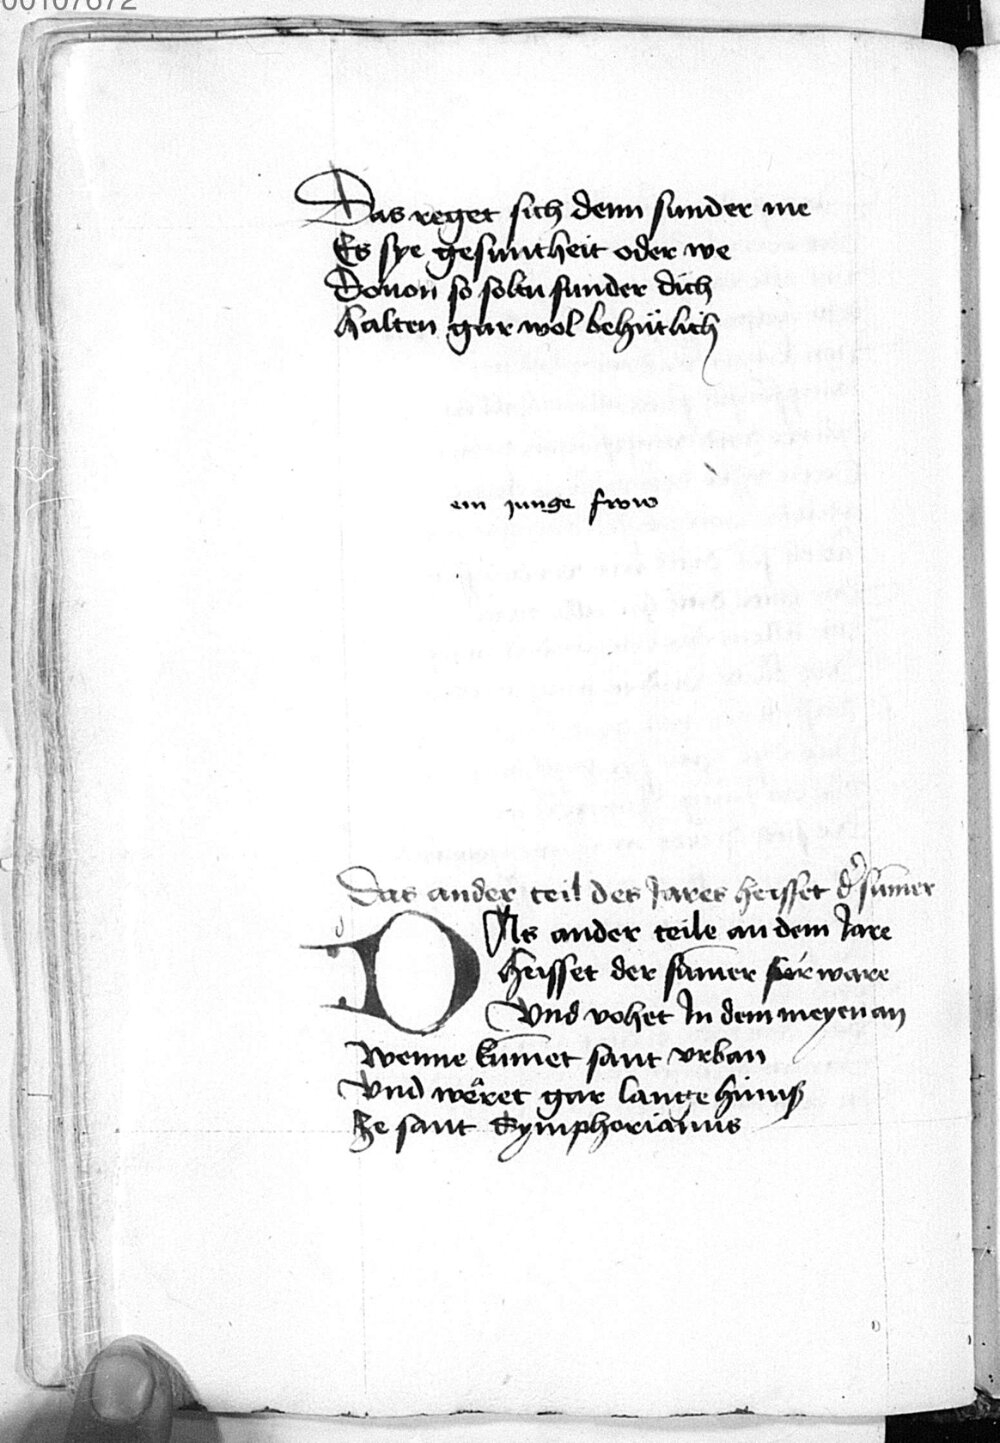 00107672
Das reget sich denn sunder me
Es sye gesuntheit oder we
Douon so soltu sunder dich
Halten gar wol behütlich
ein junge frow
Das ander teil des Jares heisset d' sum̄er
DAs ander teile an dem Jare
Heisset der sum̄er fúrware
Vnd vohet In dem meyen an
Wenne kum̄et sant vrban
Vnd wêret gar lange hinus
Ze sant Symphorianus